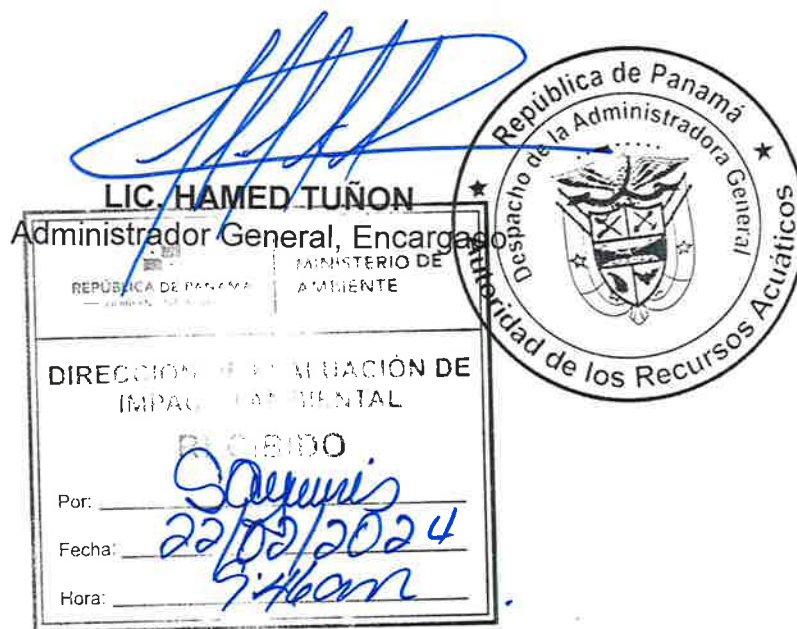 LIC. HAMED TUÑON
Administrador General, Encargado
República de Panamá
Despacho de la Administradora General
Autoridad de los Recursos Acuáticos
REPÚBLICA DE PANAMÁ
MINISTERIO DE
AMBIENTE
DIRECCIÓN DE EVALUACIÓN DE
IMPACTO AMBIENTAL
RECIBIDO
Por: Sayuris
Fecha: 22/02/2024
Hora: 9:46am